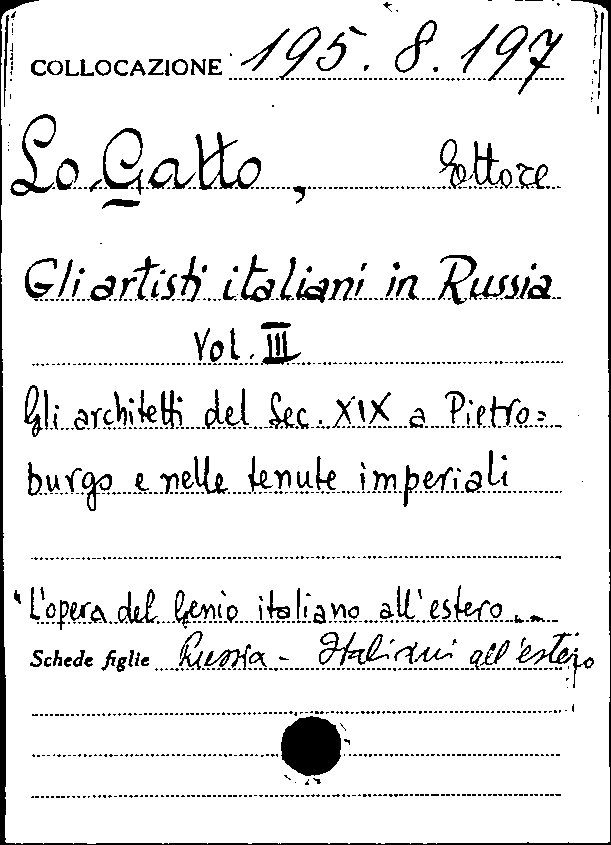 COLLOCAZIONE 195. 8. 197
Lo Gatto, Ettore
Gli artisti italiani in Russia
Vol. III
Gli architetti del Sec. XIX a Pietro=
burgo e nelle tenute imperiali
"L'opera del Genio italiano all'estero...
Schede figlie Russia - Italiani all'estero